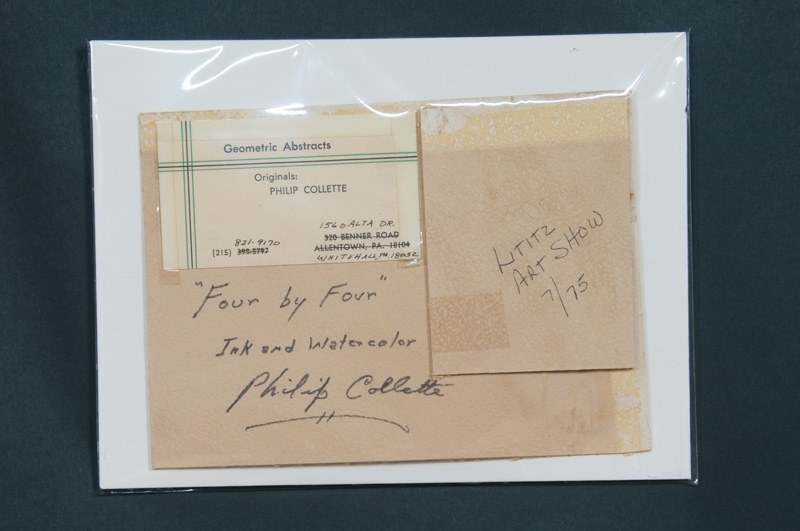 Geometric Abstracts
Originals:
PHILIP COLLETTE
156 D ALTA DR.
320 BENNER ROAD
821-9170
ALLENTOWN, PA. 18104
(215) 395-5797
WHITEHALL, PA. 18052
"Four by Four"
Ink and Watercolor
Philip Collette
LITITZ
ART SHOW
7/75